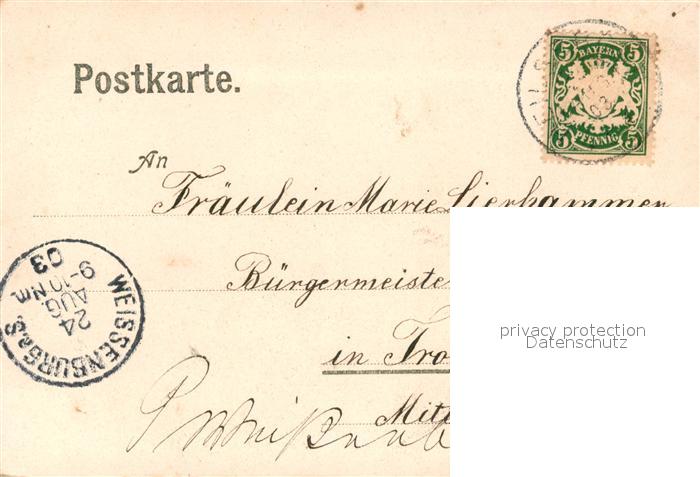 Postkarte.
5 BAYERN 5
5 PFENNIG 5
An
Fräulein Marie Lierhammer
Bürgermeiste
in Tro
Mitt
P Weißenb
WEISSENBURG a/S.
24
AUG.
9-10 Nm.
03
privacy protection
Datenschutz